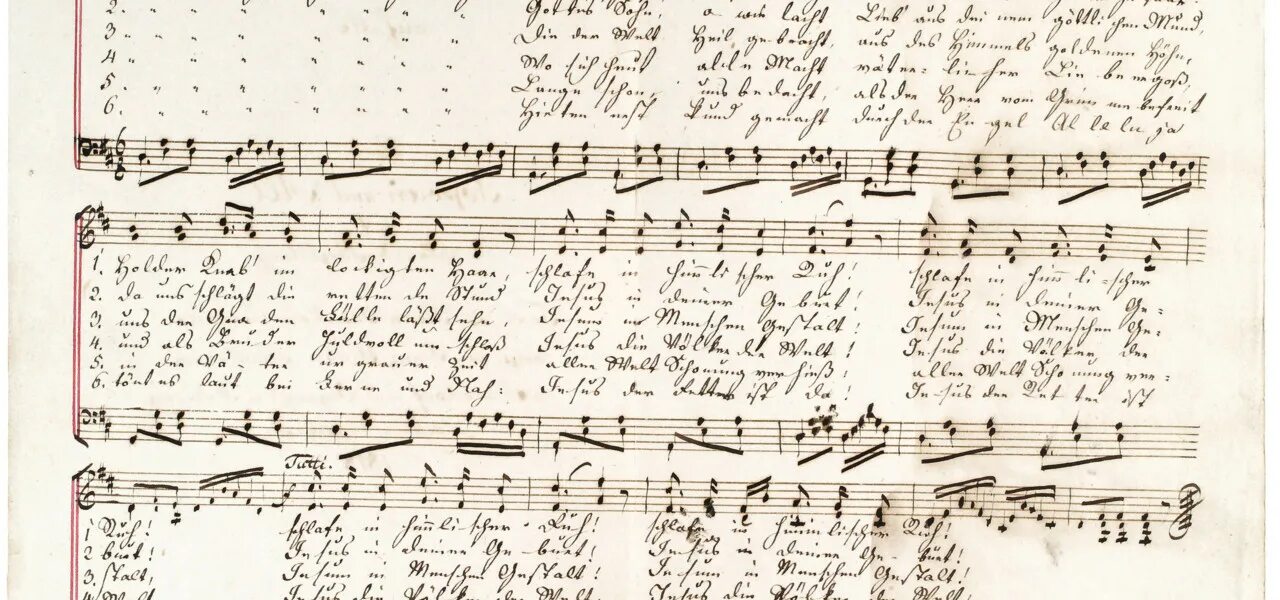 2. " " " " " " " Gottes Sohn, o wie lacht, Lieb' aus dei nem göttli chen Mund,
3 " " " " " " " Die der Welt Heil ge bracht, aus des Himmels goldenen Höhn,
4 " " " " " " " Wo sich heut alle Macht väter- li cher Lie be ergoß,
5. " " " " " " " Lange schon, uns bedacht, als der Herr vom Grim me befreit
6. " " " " " " " Hirten erst kund gemacht durch der En gel Al le lu ja
1. Holder Knab' im lockigten Haar, schlafe in himli scher Ruh! schlafe in himli-scher
2. da uns schlägt die retten de Stund Jesus in deiner Ge burt! Jesus in deiner Ge-
3. uns der Gna den Fülle läßt sehn, Jesum in Menschen Gestalt! Jesum in Menschen Ge-
4. und als Bruder Huldvoll um-schloß Jesus die Völker der Welt! Jesus die Völker der
5. in der Vä-ter ur grauer Zeit aller Welt Schonung ver hieß! aller Welt Scho nung ver-
6. tönt es laut bei Fer ne und Nah: Je-sus der Retter ist da! Je-sus der Ret ter ist
Tutti.
1 Ruh! schlafe in himlischer Ruh! schlafe in himlischer Ruh!
2 burt! Je sus in deiner Ge-burt! Jesus in deiner Ge-burt!
3. stalt, Jesum in Menschen Gestalt! Jesum in Menschen Gestalt!
4. Welt Jesus die Völker der Welt! Jesus die Völker der Welt!